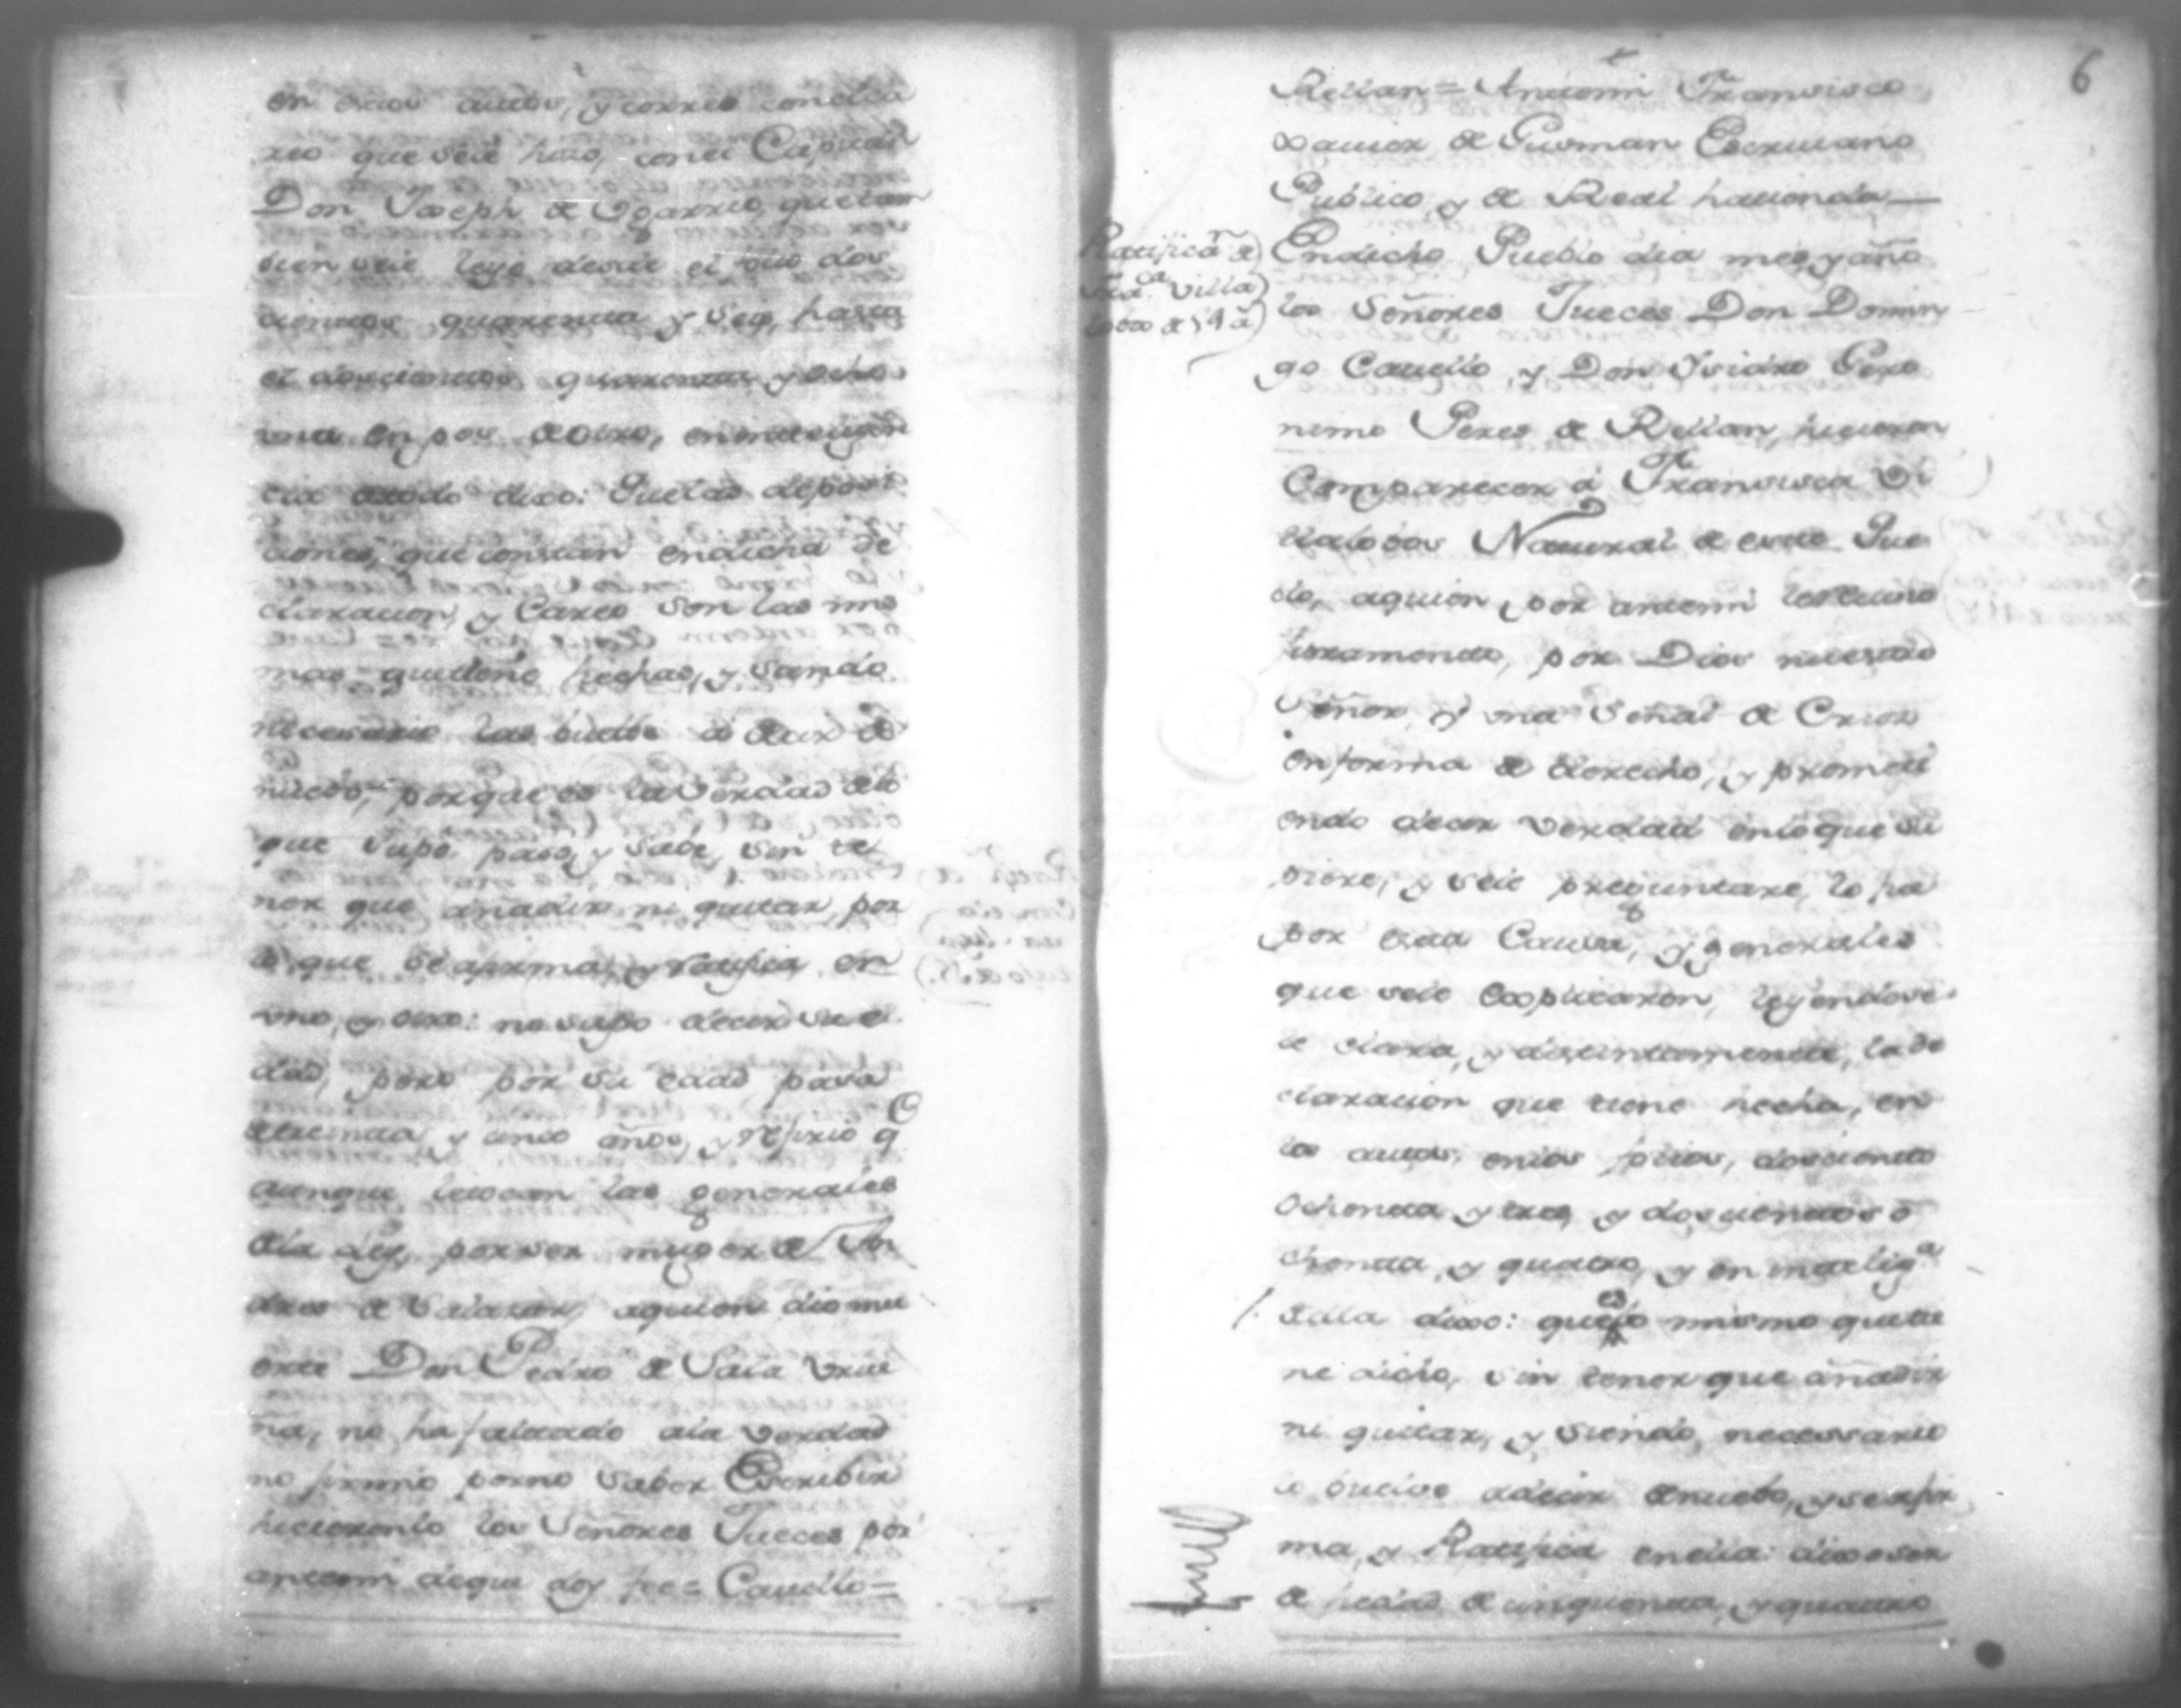 en estos autos, y correo conella
reo que sele hizo, conel Capitan
Don Joseph de Ogarrio, que tam
bien sele leyo desde el folio dos
cientos quarenta y seis, hasta
el doscientos quarenta y ocho
una en pos de otro, enintelijen
cia detodo dixo: Quelas deposi
ciones, que constan endicha de
claracion, y Careo son las mis
mas quetiene hechas, y siendo
necessario las buelbe a decir de
nuebo, porque es la Verdad delo
que supo, paso, y save, sin te
ner que añadir ni quitar, por
lo que se afirma, y ratifica en
uno, y otro: no supo decir su e
dad, pero por su caad pasa
detreinta y cinco años, y refirio q
aunque letocan las generales
dela Ley, por ser muger de An
dres de Salazar, aquien dio mu
erte Don Pedro de Sala Urue
ña, no ha faltado ala verdad
no firmó porno saber Escribir
hicieronlo los Señores Jueces por
antemi deque doy fee= Cauello=
6
Rellan= Antemi Francisco
Xauier de Gusman Escriuano
Publico, y de Real hacienda
Ratifican de
Fraca Villa
lobos de 54 a
Endicho Pueblo dia mes, y año
los Señores Jueces Don Domin
go Cauello, y Don Ysidro Gero
nimo Peres de Rellan, hicieron
Comparecer á Francisca Vi
llalobos Natural de este Pue
blo, aquien por antemi lerecivio
Juramento, por Dios nuestro
Señor, y una Señal de Cruz
enforma de derecho, y prometi
endo decir verdad enloque su
piere, y sele preguntare, lo fue
por esta Causa, y generales
que sele explicaron, leyendose
le clara, y distintamente, la de
claracion que tiene hecha, en
los autos, enlas fojas, doscientos
ochenta y tres, y doscientos o
chenta, y quatro, y en inteliga
della dixo: que es lo mismo que tie
ne dicho, sin tener que añadir
ni quitar, y siendo, necessario
lo buelve adecir denuebo, y se afir
ma, y Ratifica enella: dixo ser
de hedad de cinquenta, y quatro